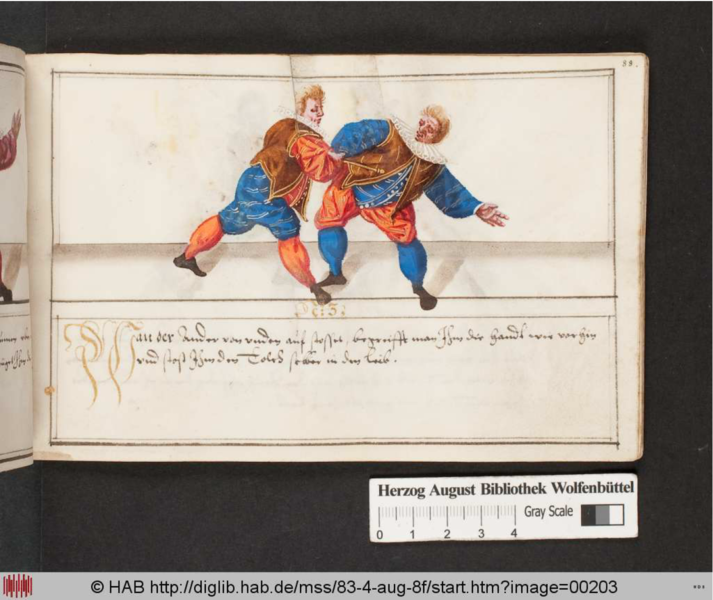 88.
Wan der Ander von unden auf stosset, begreifft man Ihm die handt wie vorhin
und stost Ihm den Tolch selber in den Leib.
Herzog August Bibliothek Wolfenbüttel
Gray Scale
0 1 2 3 4
© HAB http://diglib.hab.de/mss/83-4-aug-8f/start.htm?image=00203